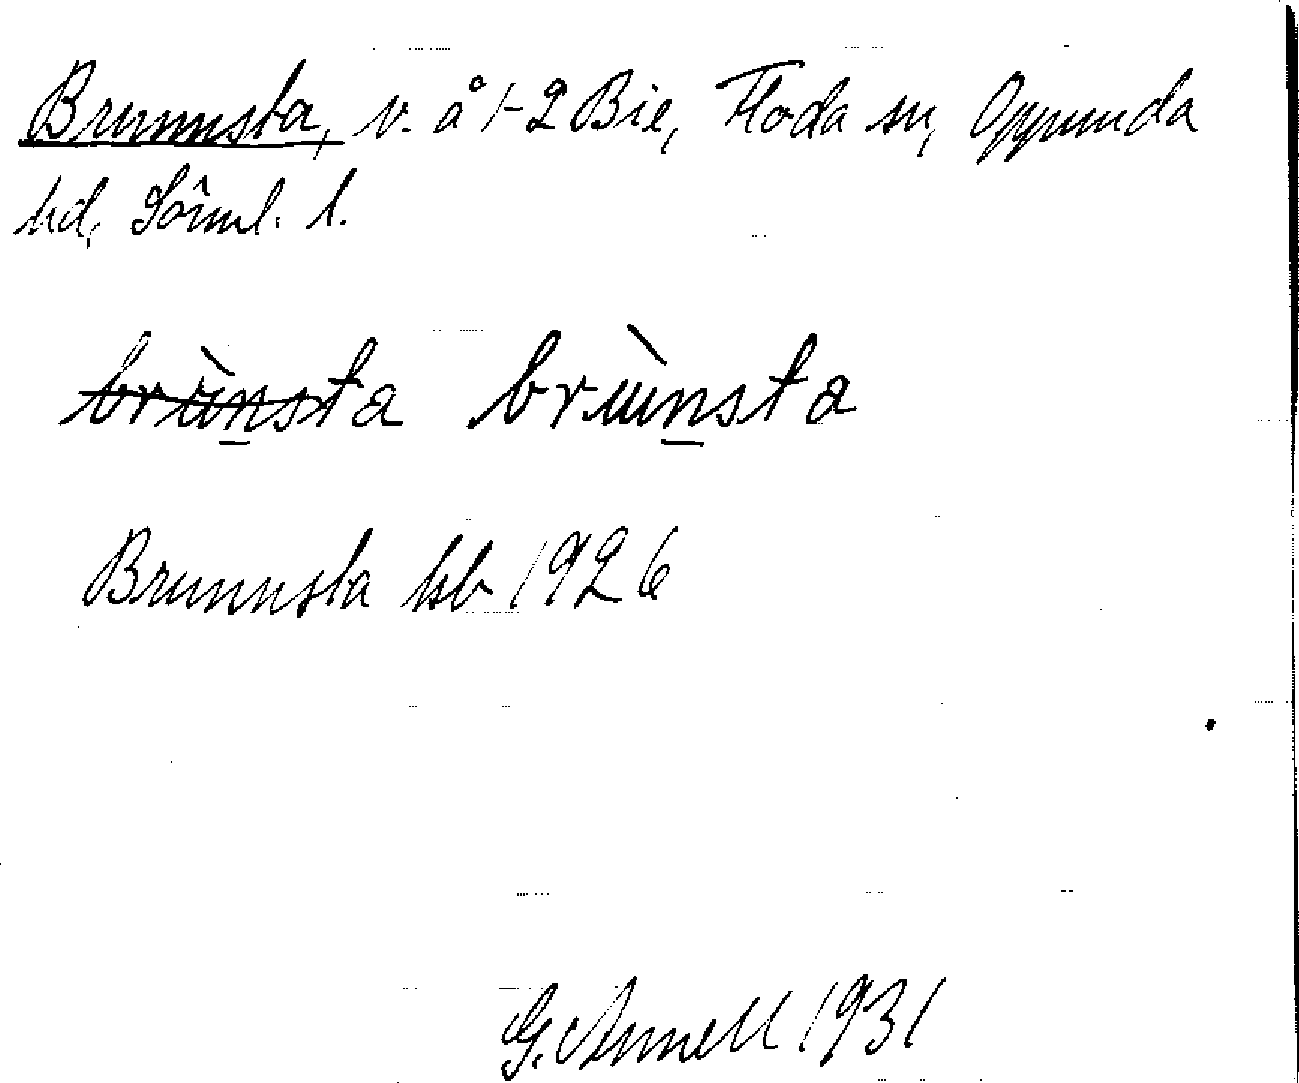 Brunnsta, v. å 1-2 Bie, Floda sn, Oppunda
hd, Söml. l.
brùn̲sta brùn̲sta
Brunnsta kb 1926
G. Annell 1931